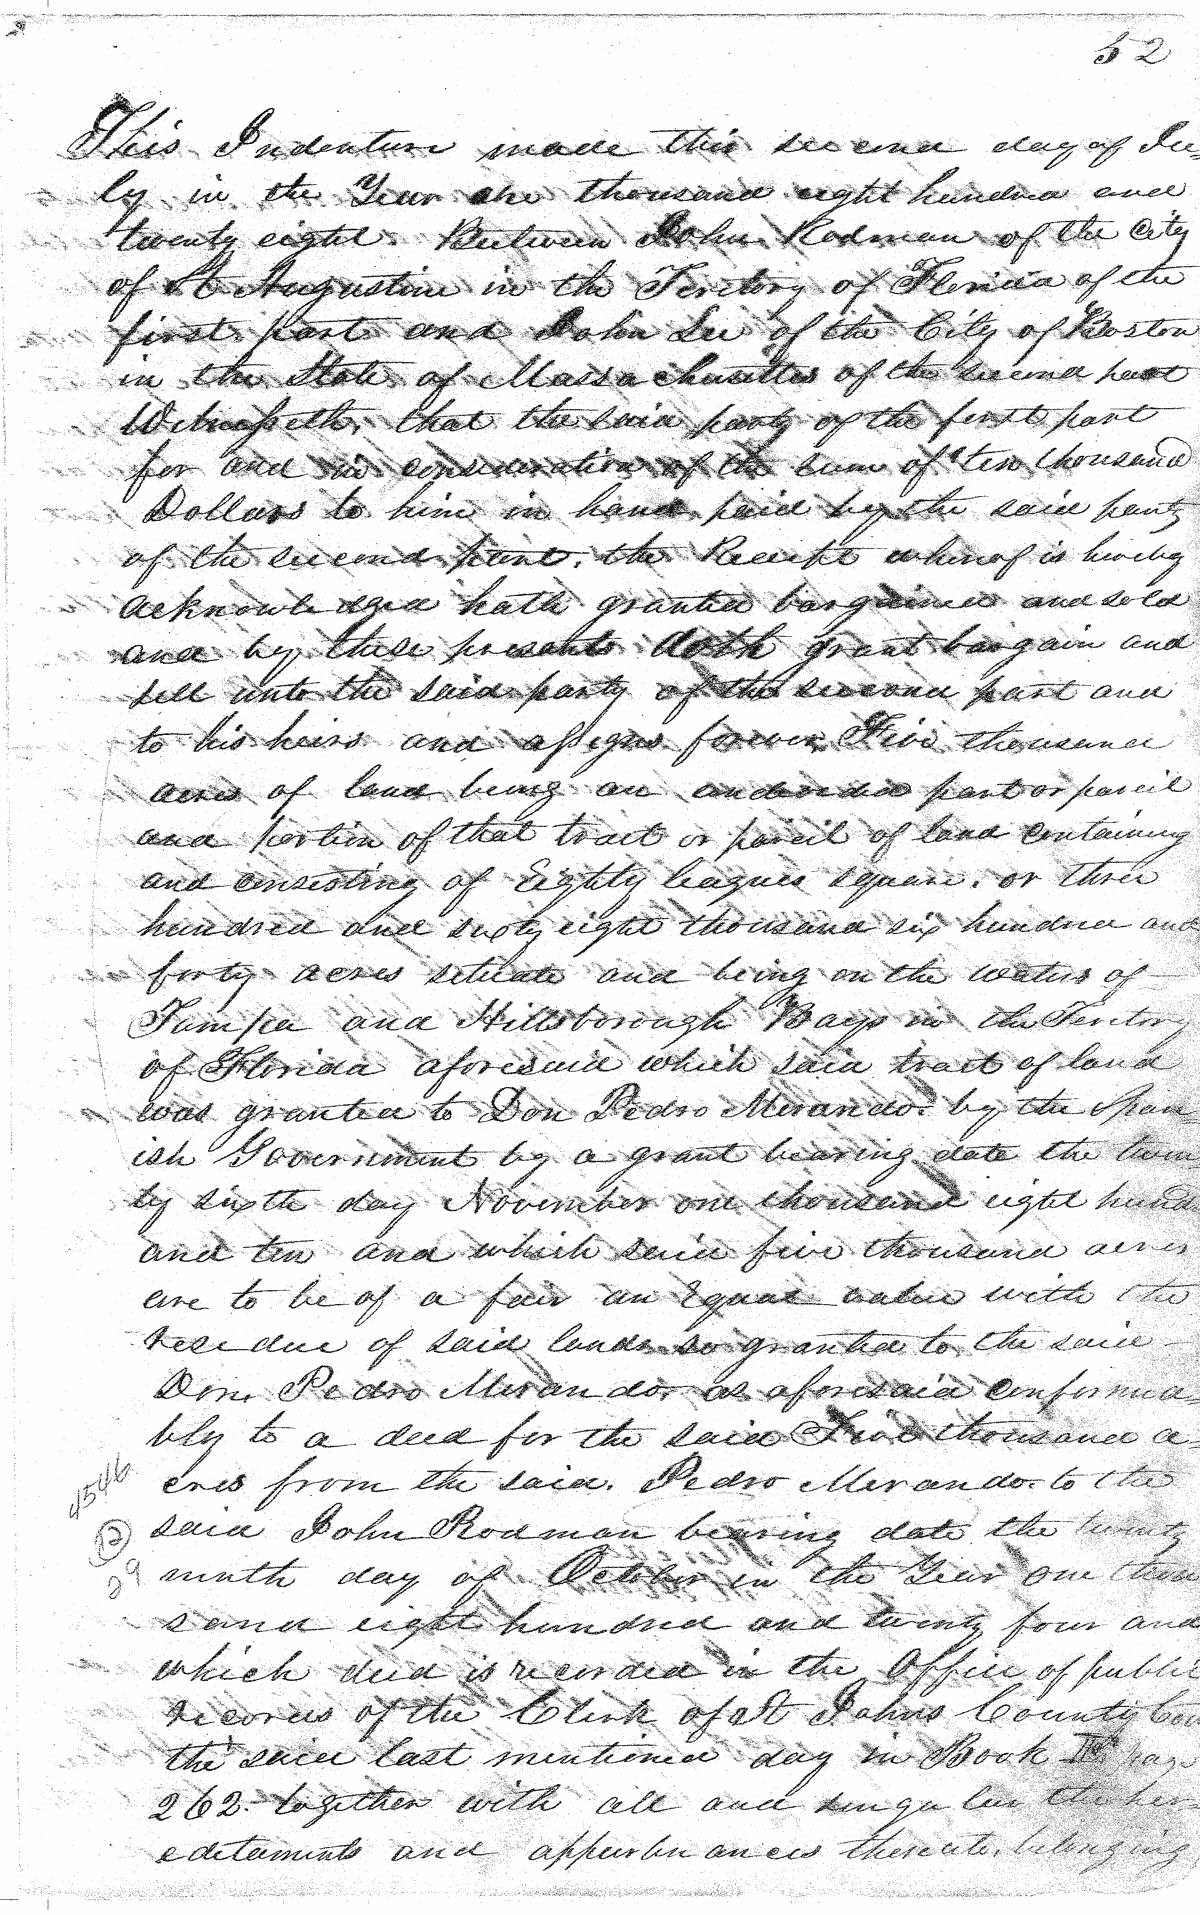 52
This Indenture made this second day of Ju-
ly in the Year one thousand eight hundred and
twenty eight. Between John Rodman of the City
of St Augustine in the Territory of Florida of the
first part and John Lee of the City of Boston
in the State of Massachusetts of the second part
Witnesseth, that the said party of the first part
for and in consideration of the sum of ten thousand
Dollars to him in hand paid by the said party
of the second part, the Receipt whereof is hereby
acknowledged hath granted bargained and sold
and by these presents doth grant bargain and
sell unto the said party of the second part and
to his heirs and assigns forever, Five thousand
acres of land being an undivided part or parcel
and portion of that tract or parcel of land containing
and consisting of Eighty leagues square, or three
hundred and sixty eight thousand six hundred and
forty acres situate and being on the waters of
Tampa and Hillsborough Bays in the Territory
of Florida aforesaid which said tract of land
was granted to Don Pedro Mirando by the Span-
ish Government by a grant bearing date the twen-
ty sixth day November one thousand eight hund
and ten and which said five thousand acres
are to be of a fair an Equal value with the
residue of said lands so granted to the said
Don Pedro Mirando, as aforesaid conforma-
bly to a deed for the said Five thousand a-
cres from the said Pedro Mirando to the
4546
said John Rodman bearing date the twenty
12
ninth day of October in the Year one thou
29
sand eight hundred and twenty four and
which deed is recorded in the Office of public
records of the Clerk of St Johns County Cou
the said last mentioned day in Book page
262 together with all and singular the her-
editaments and appurtenances thereto belonging